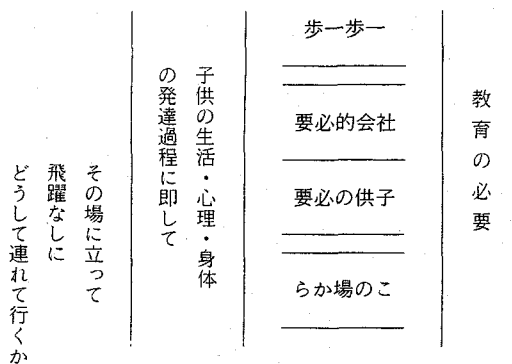 教育の必要
一歩一歩
社会的必要
子供の必要
この場から
子供の生活・心理・身体
の発達過程に即して
その場に立って
飛躍なしに
どうして連れて行くか